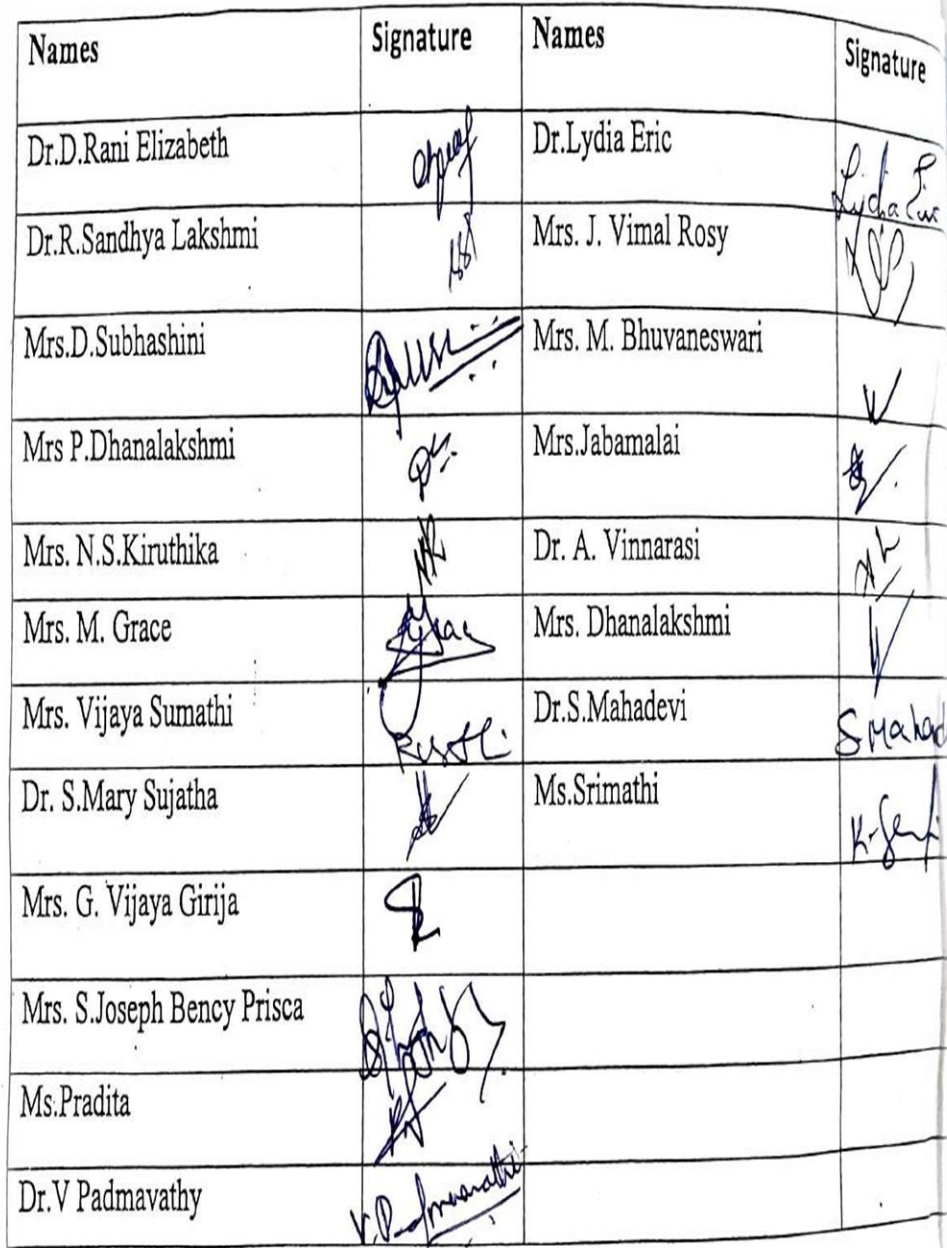 Names Signature Names Signature
Dr.D.Rani Elizabeth Dr.Lydia Eric Lydia
Dr.R.Sandhya Lakshmi Mrs. J. Vimal Rosy
Mrs.D.Subhashini Mrs. M. Bhuvaneswari
Mrs P.Dhanalakshmi Mrs.Jabamalai
Mrs. N.S.Kiruthika Dr. A. Vinnarasi
Mrs. M. Grace Mrs. Dhanalakshmi
Mrs. Vijaya Sumathi Dr.S.Mahadevi S Mahad
Dr. S.Mary Sujatha Ms.Srimathi
Mrs. G. Vijaya Girija
Mrs. S.Joseph Bency Prisca
Ms.Pradita
Dr.V Padmavathy